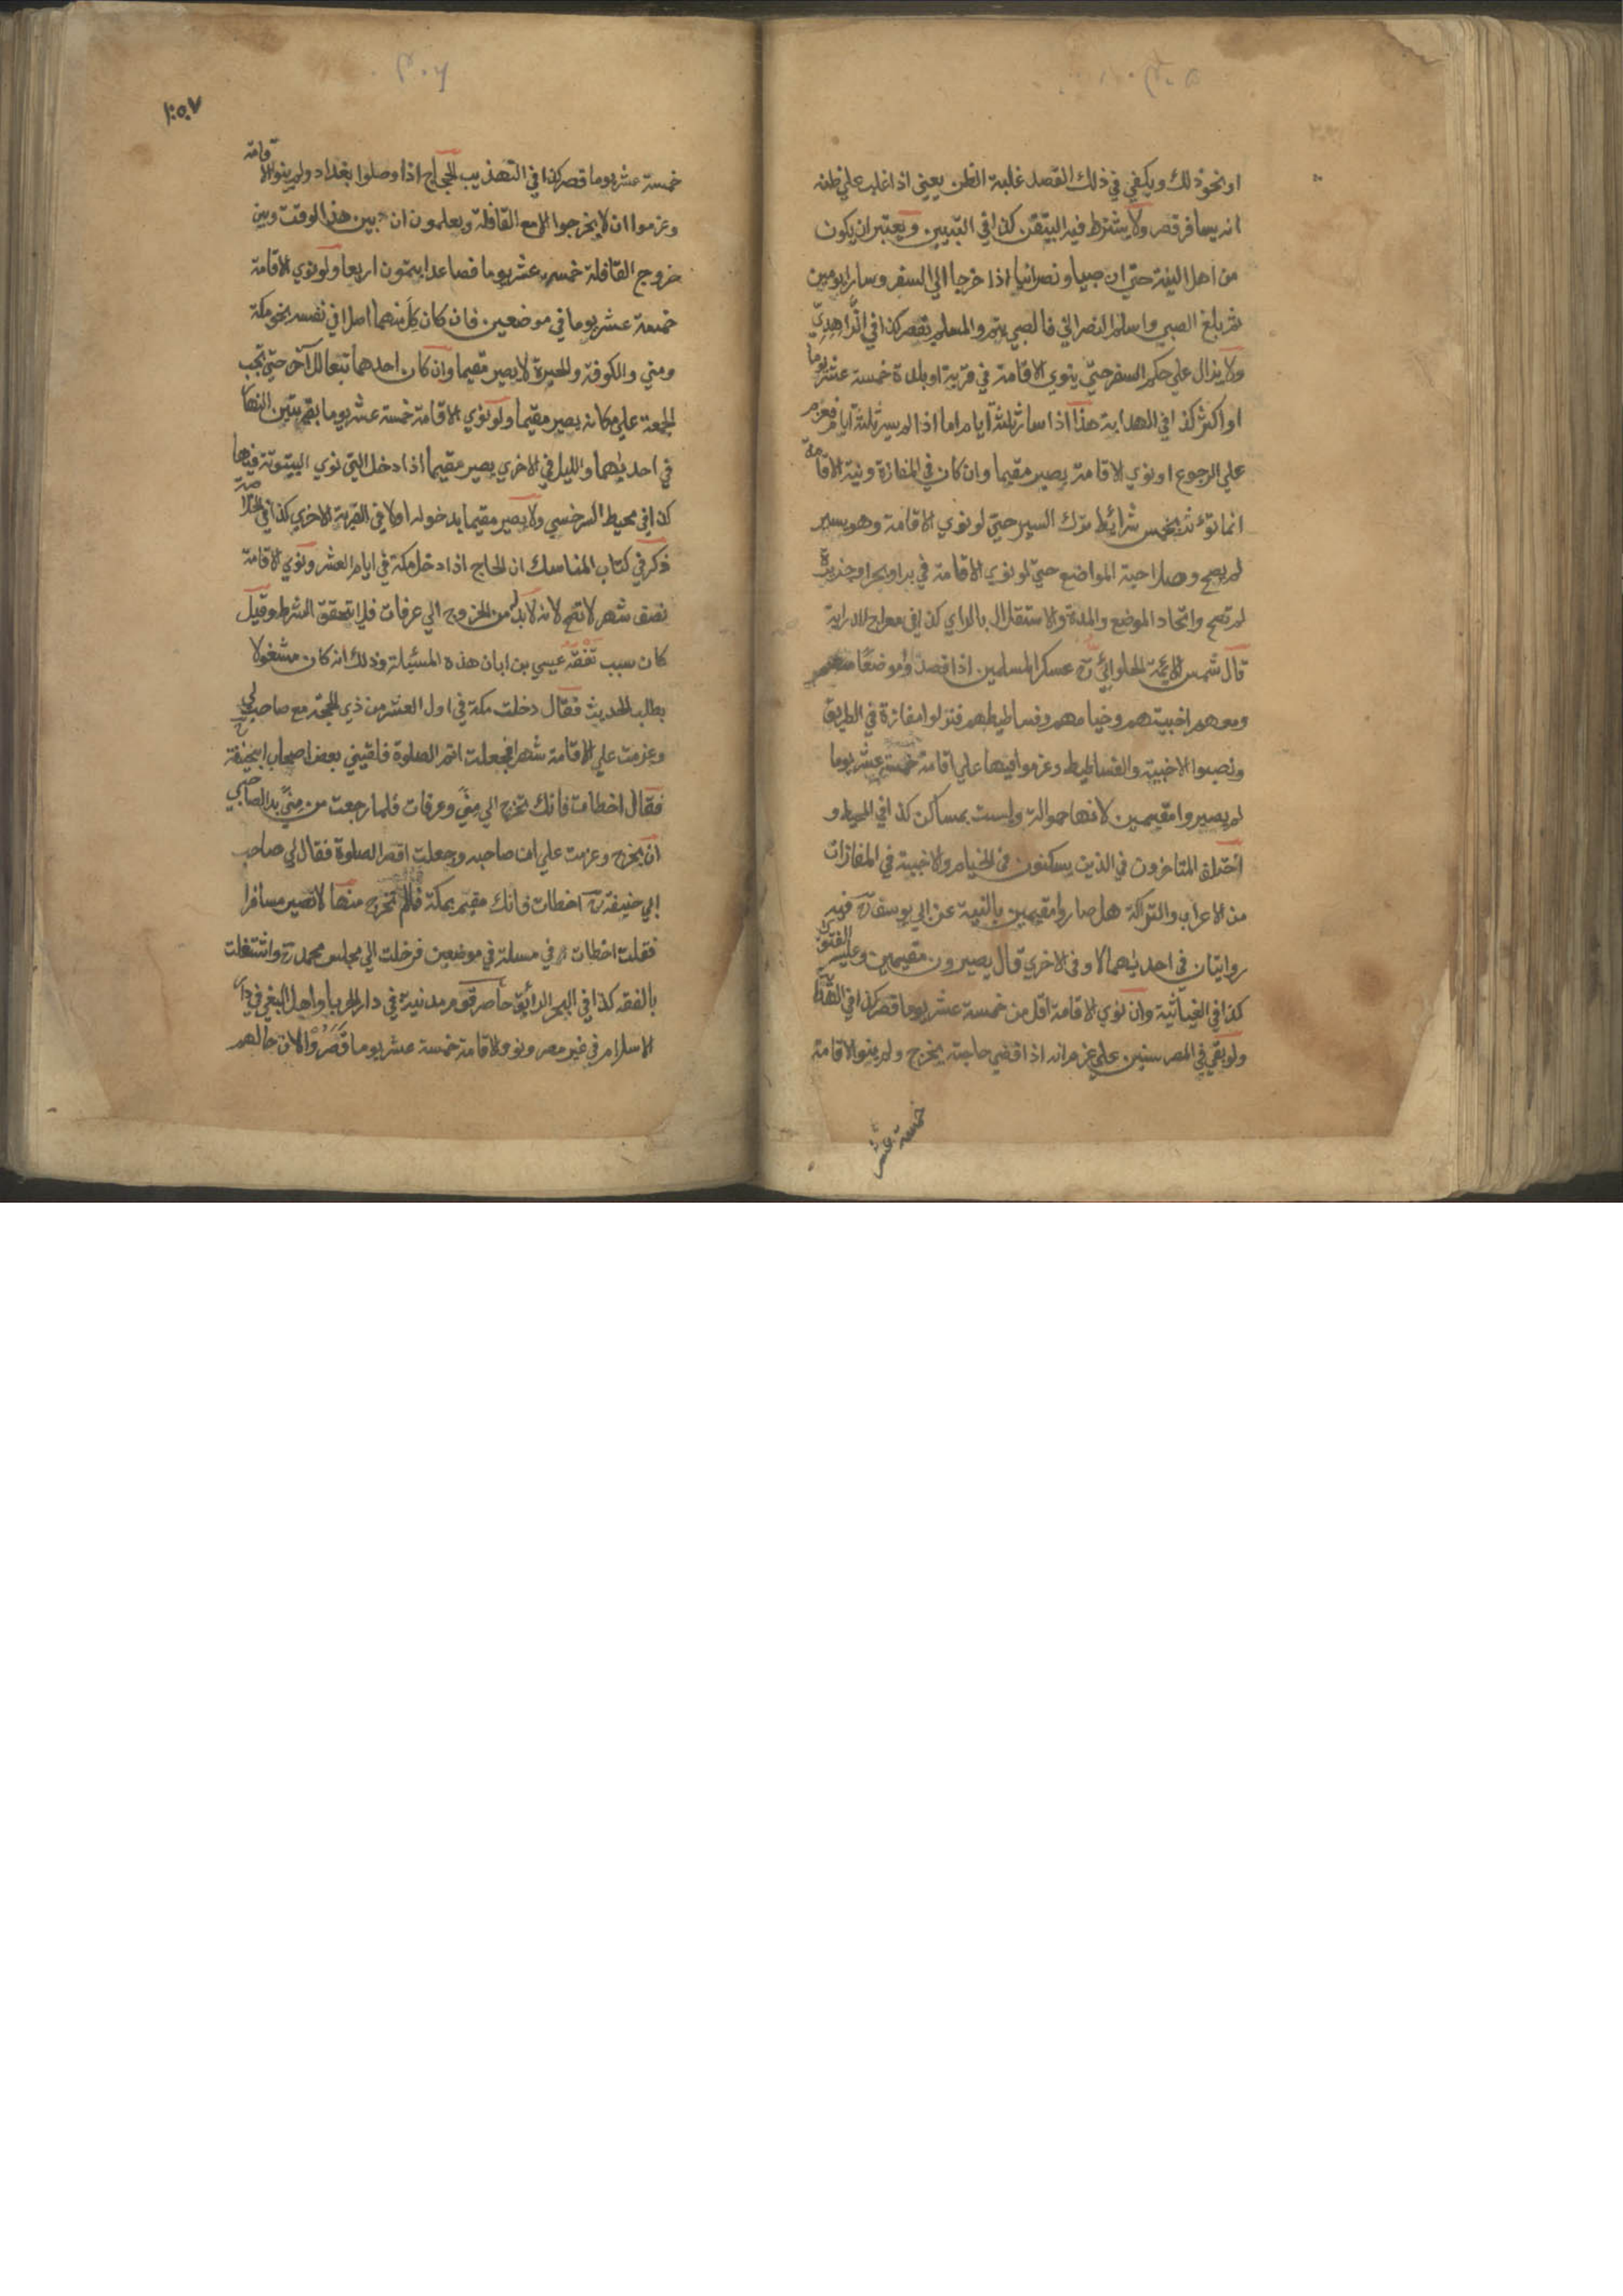 او نحو ذلك ويكفي في ذلك القصد غلبة الظن يعني اذا غلب علي ظنه
انه يسافر قصر ولا يشترط فيه التيقن كذا في التبيين ويعتبر ان يكون
من اهل النية حتي ان صبيا ونصرانيا اذا خرجا الي السفر وسارا يومين
ثم بلغ الصبي واسلم النصراني فالصبي يتم والمسلم يقصر كذا في الزاهدي
ولا يزال علي حكم السفر حتي ينوي الاقامة في قرية او بلدة خمسة عشر يوما
او اكثر كذا في الهداية هذا اذا سار ثلثة ايام اما اذا لم يسر ثلثة ايام فعزم
علي الرجوع او نوي الاقامة يصير مقيما وان كان في المفازة ونية الاقامة
انما تؤثر بخمس شرائط ترك السير حتي لو نوي الاقامة وهو يسير
لم يصح وصلاحية المواضع حتي لو نوي الاقامة في بر او بحر او جزيرة
لم تصح واتحاد الموضع والمدة والاستقلال بالراي كذا في معراج الدراية
قال شمس الائمة الحلوائي رح عسكر المسلمين اذا قصدوا موضعا معهم
ومعهم اخبيتهم وخيامهم وفساطيطهم فنزلوا مفازة في الطريق
ونصبوا الاخبية والفساطيط وعزموا فيها علي اقامة خمسة عشر يوما
لم يصيروا مقيمين لانها حمولة وليست بمساكن كذا في المحيط و
اختلف المتاخرون في الذين يسكنون في الخيام والاخبية في المفازات
من الاعراب والتراكة هل صاروا مقيمين بالنية عن ابي يوسف رح فيه
روايتان في احديهما لا وفي الاخري قال يصيرون مقيمين وعليه الفتوي
كذا في الغياثية وان نوي الاقامة اقل من خمسة عشر يوما قصر كذا في الهداية
ولو بقي في المصر سنين علي عزم انه اذا قضي حاجته يخرج ولم ينو الاقامة
خمسة عشر
٣٠٦
خمسة عشر يوما قصر كذا في التهذيب الحجاج اذا وصلوا بغداد ولم ينوا الاقامة
وعزموا ان لا يخرجوا الا مع القافلة ويعلمون ان بين هذا الوقت وبين
خروج القافلة خمسة عشر يوما فصاعدا يتمون اربعا ولو نوي الاقامة
خمسة عشر يوما في موضعين فان كان كل منهما اصلا في نفسه نحو مكة
ومني والكوفة والحيرة لا يصير مقيما وان كان احدهما تبعا للآخر حتي تجب
الجمعة علي مكانه يصير مقيما ولو نوي الاقامة خمسة عشر يوما بقريتين النهار
في احديهما والليل في الاخري يصير مقيما اذا دخل التي نوي البيتوتة فيها
كذا في محيط السرخسي ولا يصير مقيما بدخوله اولا في القرية الاخري كذا في الخلاصة
ذكر في كتاب المناسك ان الحاج اذا دخل مكة في ايام العشر ونوي الاقامة
نصف شهر لا تصح لانه لا بد له من الخروج الي عرفات فلا يتحقق الشرط وقيل
كان سبب تفقه عيسي بن ابان هذه المسئلة وذلك انه كان مشغولا
بطلب الحديث فقال دخلت مكة في اول العشر من ذي الحجة مع صاحب لي
وعزمت علي الاقامة شهرا فجعلت اتم الصلوة فلقيني بعض اصحاب ابيحنيفة رح
فقال اخطات فانك تخرج الي مني وعرفات فلما رجعت من مني بدا لصاحبي
ان يخرج وعزمت علي ان صاحبه وجعلت اقصر الصلوة فقال لي صاحب
ابي حنيفة رح اخطات فانك مقيم بمكة فما لم تخرج منها لا تصير مسافرا
فقلت اخطات في مسلة في موضعين فرحلت الي مجلس محمد رح واشتغلت
بالفقه كذا في البحر الرائق حاصر قوم مدينة في دار الحرب او اهل البغي في دار
الاسلام في غير مصر ونووا الاقامة خمسة عشر يوما قصروا لان حالهم